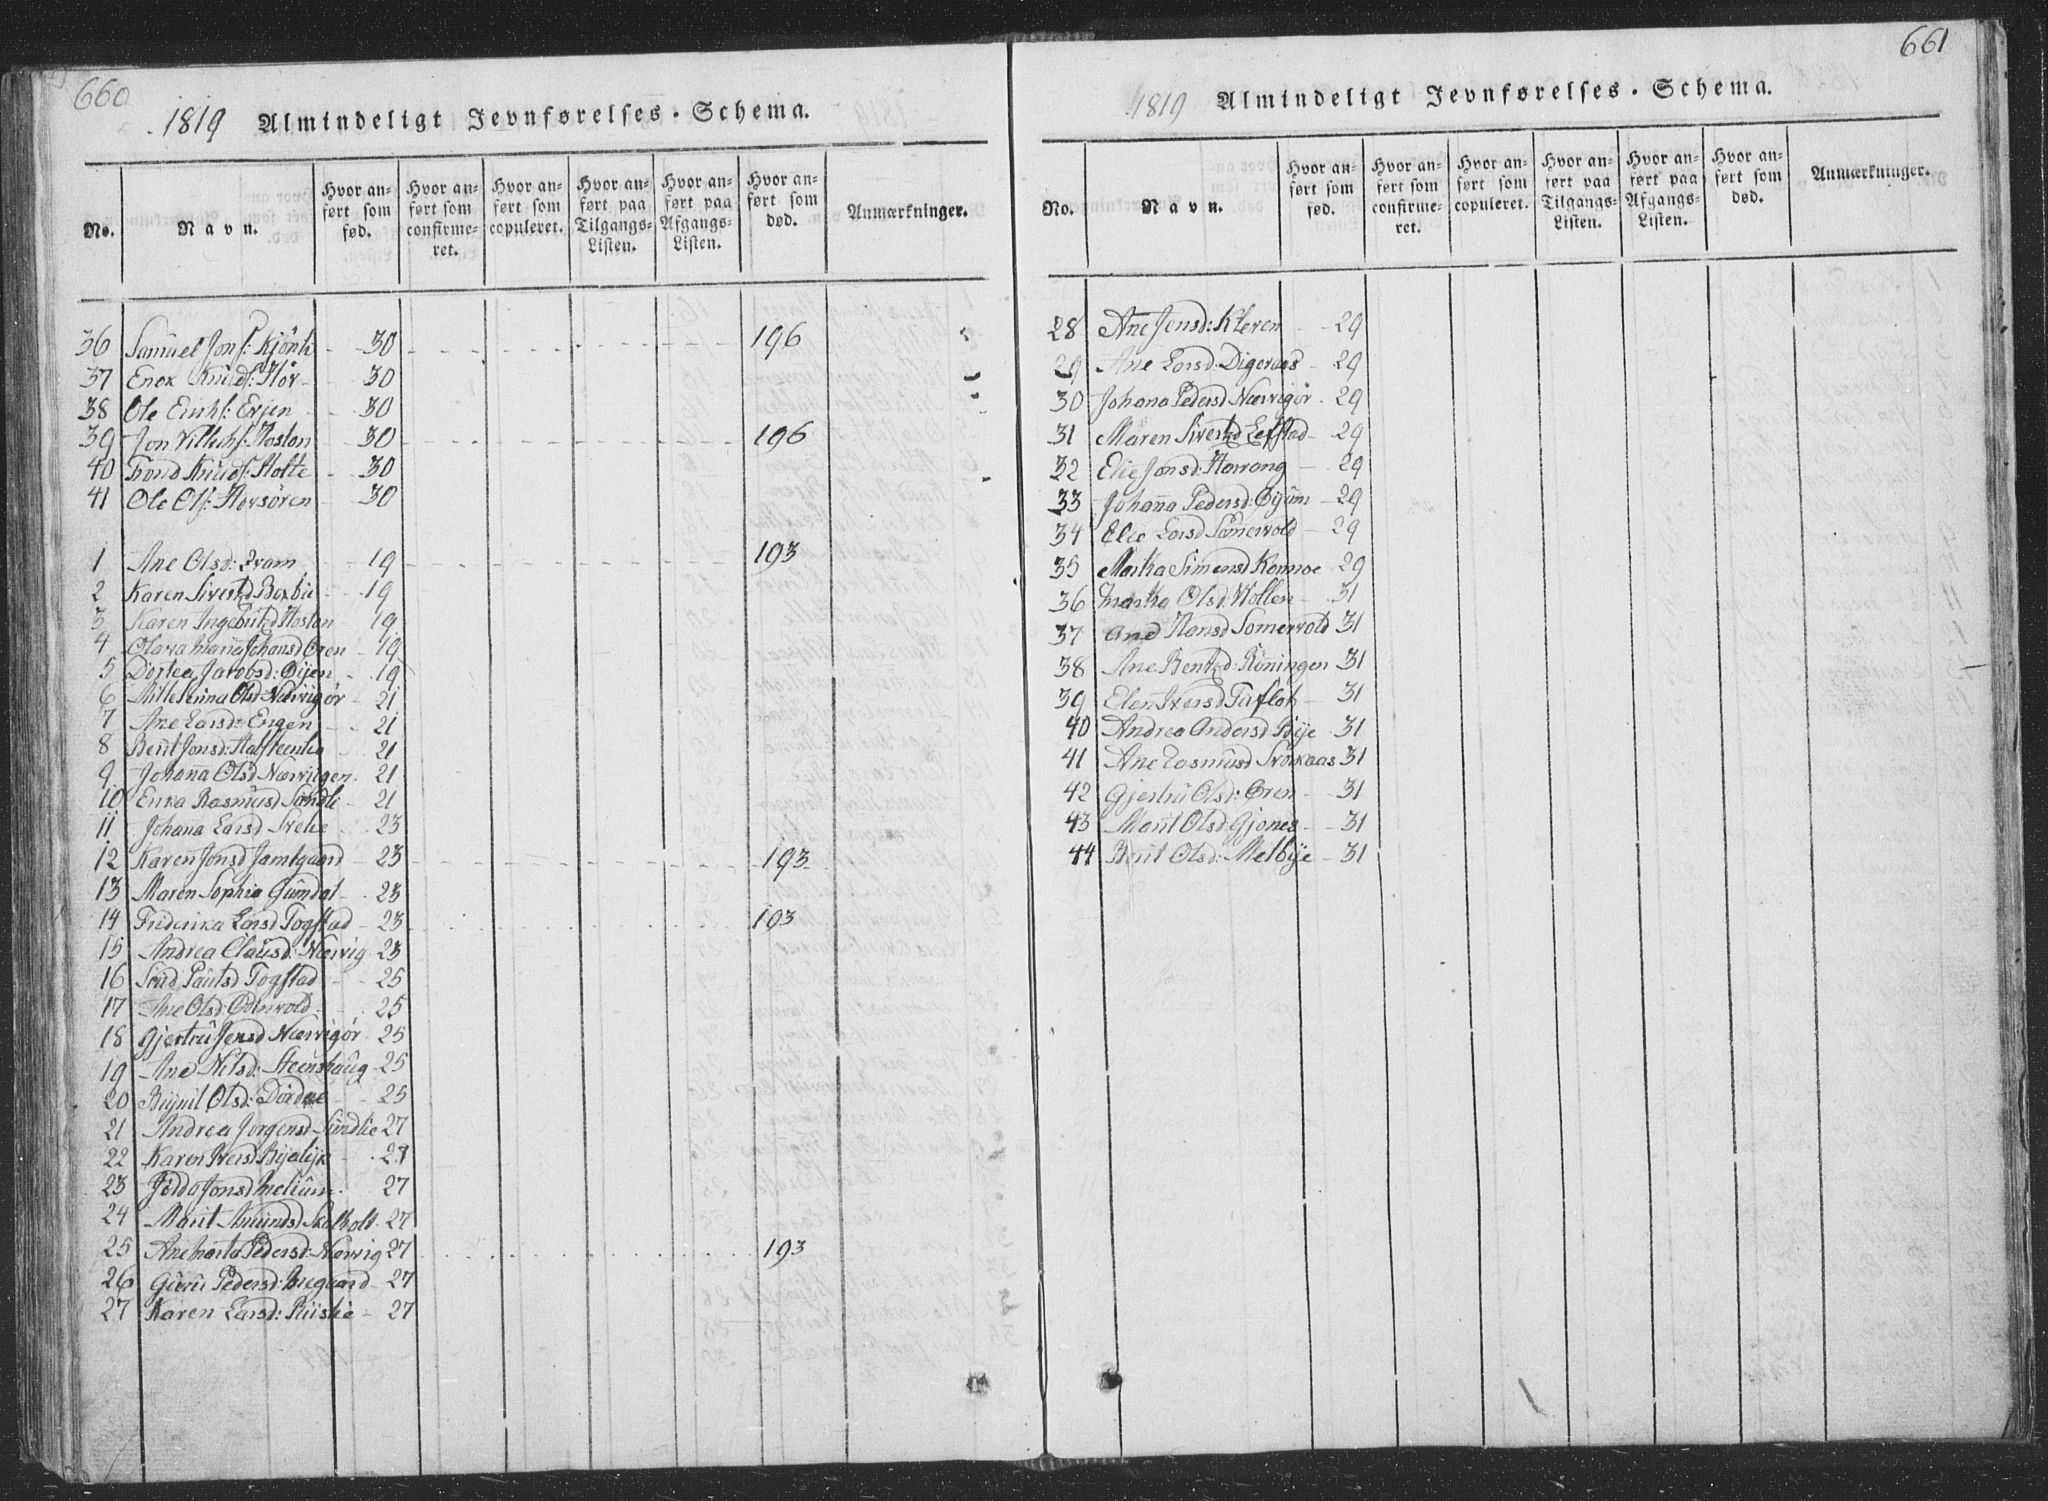 660
1819 Almindeligt Jevnførelses-Schema.
No. Navn. Hvor anført som fød. Hvor anført som confirmeret. Hvor anført som copuleret. Hvor anført paa Tilgangs-Listen. Hvor anført paa Afgangs-Listen. Hvor anført som død. Anmærkninger.
36 Samuel Jons: Kjönli 30 196
37 Enok Knuds: Hör 30
38 Ole Erichs: Evjen 30
39 Jon Villichs: Hoston 30 196
40 Trond Knuds: Holte 30
41 Ole Ols: Horsören 30
1 Ane Olsd: Fram 19 193
2 Karen Sivertsd Boxbii 19
3 Karen Ingebritsd Hoston 19
4 Olava Maria Johansd Øren 19
5 Dortea Jacobsd: Øijen 19
6 Olsd Nærvigør 21
7 Ane Larsd: Engen 21
8 Berit Jonsd: 21
9 Johanna Olsd Nærvigen 21
10 Erika Rasmusd Sondli 21
11 Johana Larsd 23
12 Karen Jonsd Jamtgaard 23 193
13 Maren Sophia Gumdal 23
14 Friderika Larsd Togstad 23 193
15 Andrea Clausd: Nærvig 23
16 Paulsd Togstad 25
17 Ane Olsd: Odenvold 25
18 Gjertru Jensd Nærvigør 25
19 Ane Nilsd: Steenshaug 25
20 Olsd: Dordae 25
21 Andrea Jorgensd Sundlie 27
22 Karen Iversd 27
23 Jonsd 27
24 Marit Amundsd Skalholt 27
25 Ane Marta Pedersd: Nærvig 27 193
26 Guru Pedersd: 27
27 Karen Larsd: 27
661
1819 Almindeligt Jevnførelses-Schema.
No. Navn. Hvor anført som fød. Hvor anført som confirmeret. Hvor anført som copuleret. Hvor anført paa Tilgangs-Listen. Hvor anført paa Afgangs-Listen. Hvor anført som død. Anmærkninger.
28 Ane Jensd: Kleven 29
29 Ane Larsd: Digernes 29
30 Johana Pedersd Nærvigør 29
31 Maren Sivertsd Lefstad 29
32 Elie Jonsd: Horvong 29
33 Johanna Pedersd: Øijum 29
34 Elie Larsd Somervold 29
35 Martha Simensd 29
36 Martha Olsd: Wollen 31
37 Ane Hansd Somervold 31
38 Ane Bentsd: Röningen 31
39 Elen Iversd 31
40 Andrea Andersd Bye 31
41 Ane Rasmusd 31
42 Gjertru Olsd: Øren 31
43 Marit Olsd Gjones 31
44 Berit Olsd: Melbÿe 31